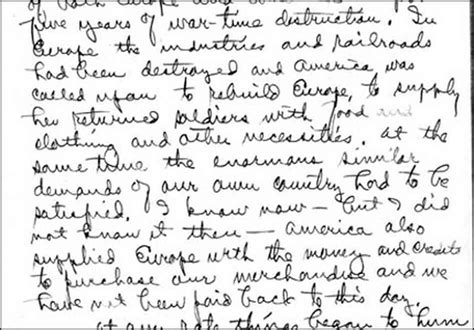 of both Europe
five years of war-time destruction. In
Europe the industries and railroads
had been destroyed and America was
called upon to rebuild Europe, to supply
her returned soldiers with food and
clothing and other necessities. At the
same time the enormous similar
demands of our own country had to be
satisfied. I know now — but I did
not know it then — America also
supplied Europe with the money and credits
to purchase our merchandise and we
have not been paid back to this day.
at any rate things began to hum